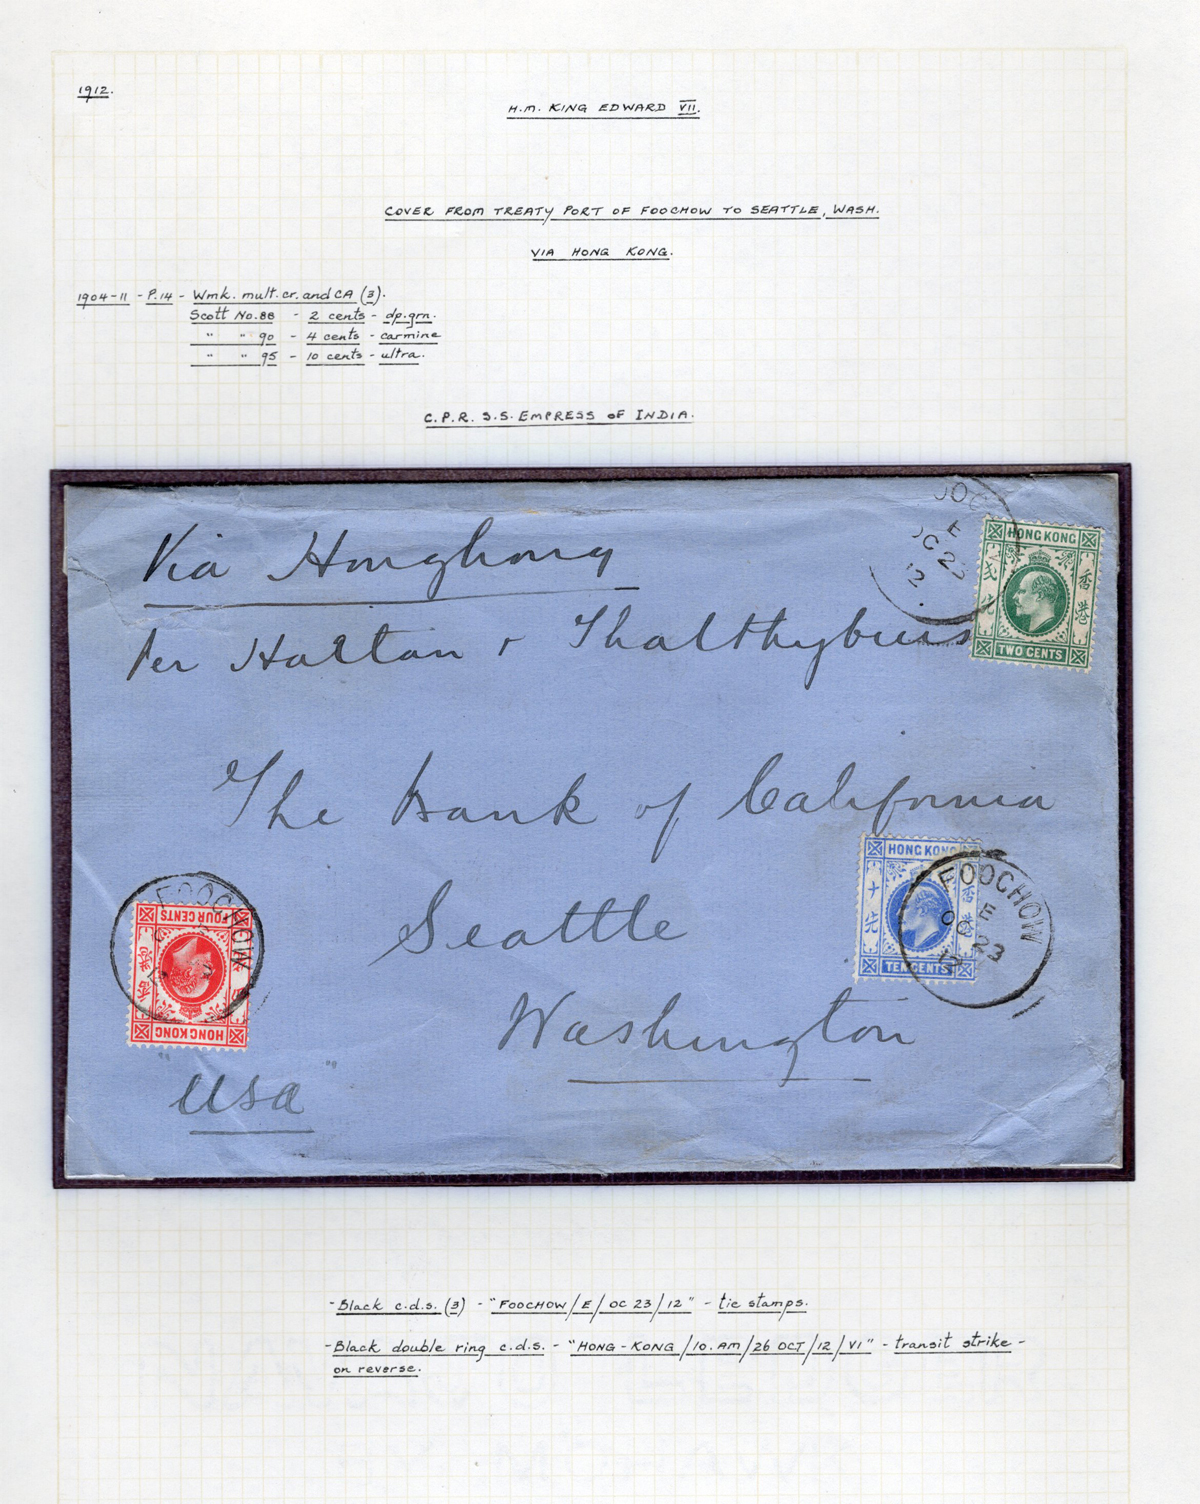 1912.
H.M. KING EDWARD VII.
COVER FROM TREATY PORT OF FOOCHOW TO SEATTLE, WASH.
VIA HONG KONG.
1904-11 - P.14 - Wmk. mult. cr. and CA (3).
Scott No. 88 - 2 cents - dp. grn.
" " 90 - 4 cents - carmine
" " 95 - 10 cents - ultra.
C.P.R. S.S. EMPRESS OF INDIA.
E
OC 23
12
HONG KONG
香港
TWO CENTS
Via Hongkong
Per Halton & Thalthybius
The Bank of California
HONG KONG
十先
香港
TEN CENTS
FOOCHOW
E
OC 23
12
FOOCHOW
FOUR CENTS
香港
HONG KONG
Seattle
Washington
"USA"
- Black c.d.s. (3) - "FOOCHOW/E/OC 23/12" - tie stamps.
- Black double ring c.d.s. - "HONG-KONG/10.AM/26 OCT/12/VI" - transit strike -
on reverse.